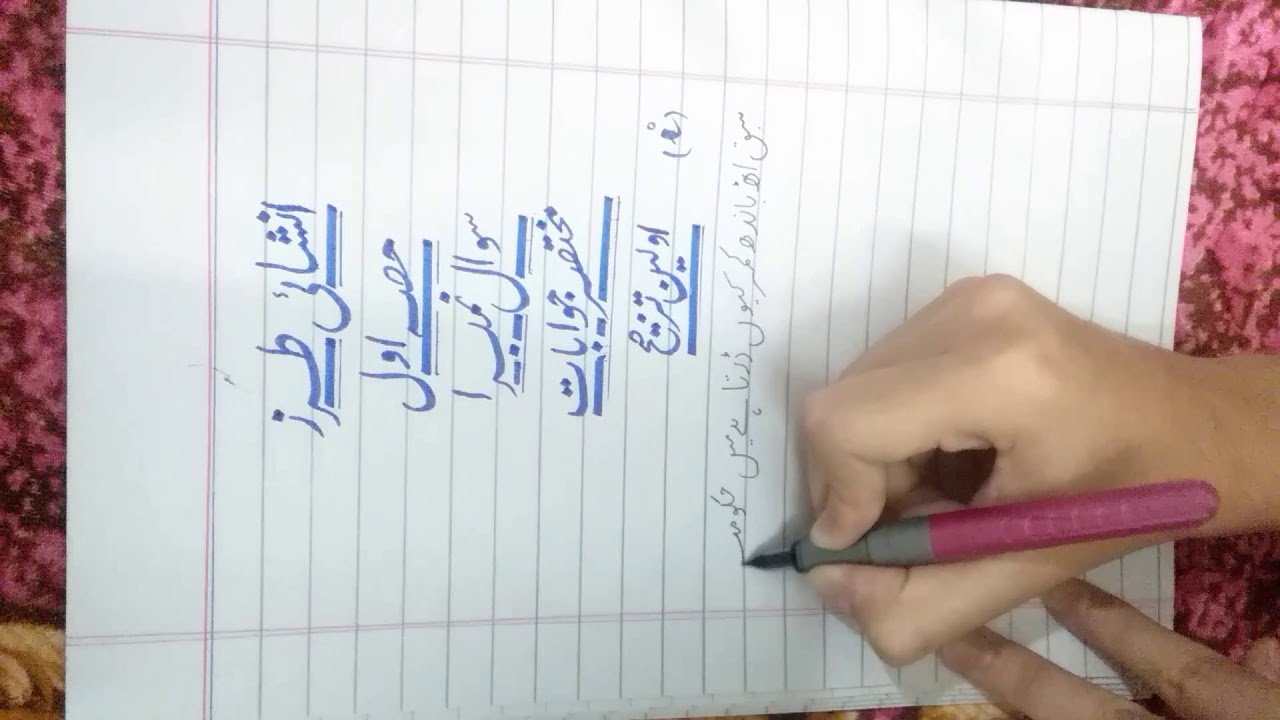 انشائی طرز
حصہ اول
سوال نمبر ا
مختصر جوابات
(i) اولین ترجیح
سبق باندھ کر کیوں ڈرتا ہے میں حکومت